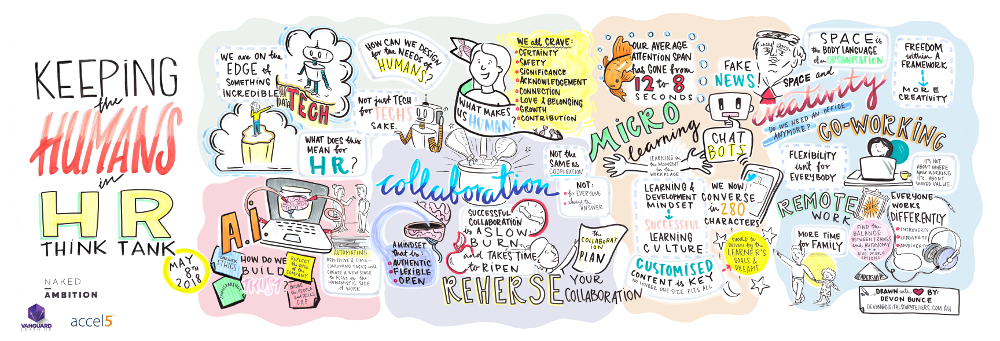 KEEPING
the
HUMANS
in
HR
THINK TANK
MAY
8TH
2018
NAKED
AMBITION
VANGUARD
accel5
WE ARE ON THE
EDGE OF
SOMETHING
INCREDIBLE
TECH
HOW CAN WE DESIGN
for the NEEDS of
HUMANS?
Not just TECH
for TECH'S
SAKE
WHAT DOES this
MEAN for
HR?
WHAT MAKES
US HUMAN?
We all CRAVE:
CERTAINTY
SAFETY
SIGNIFICANCE
ACKNOWLEDGEMENT
CONNECTION
LOVE & BELONGING
GROWTH
CONTRIBUTION
A.I.
HOW DO WE
BUILD
TRUST?
AUTOMATING
collaboration
NOT the
SAME as
COOPERATION
NOT:
for EVERYONE
always the
ANSWER
A MINDSET
that is:
AUTHENTIC
FLEXIBLE
OPEN
SUCCESSFUL
COLLABORATION
is A SLOW
BURN
and TAKES TIME
to RIPEN
the COLLABORATION
PLAN
REHERSE YOUR
COLLABORATION
OUR AVERAGE
ATTENTION SPAN
has GONE from
12 to 8
SECONDS
MICRO
learning
LEARNING in
the MOMENT
in the
WORKPLACE
LEARNING &
DEVELOPMENT
MINDSET
SUCCESSFUL
LEARNING
CULTURE
CUSTOMISED
CONTENT is KEY
no LONGER ONE-SIZE FITS ALL
FAKE
NEWS!
CHAT
BOTS
WE NOW
CONVERSE
in 280
CHARACTERS
DRIVEN by the
LEARNER'S
GOALS &
DREAMS
SPACE is
the BODY LANGUAGE
of an ORGANISATION
SPACE and
creativity
DO WE NEED AN OFFICE
ANYMORE?
FREEDOM
within A
FRAMEWORK
MORE
CREATIVITY
CO-WORKING
FLEXIBILITY
isn't for
EVERYBODY
IT'S NOT
ABOUT WHERE
YOU'RE WORKING
IT'S ABOUT
SHARED VALUE
REMOTE
WORK
MORE TIME
for FAMILY
FIND the
BALANCE
EVERYONE
WORKS
DIFFERENTLY
INTROVERTS
LEADERSHIP
DRAWN with BY:
DEVON BUNCE